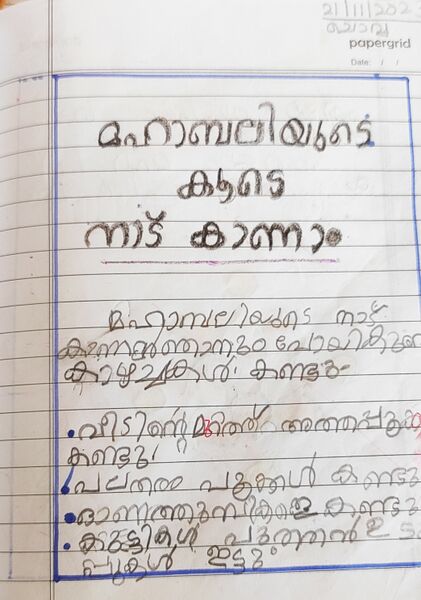 21/11/202
ചൊവ്വ
papergrid
Date: / /
മഹാബലിയുടെ
കൂടെ
നാട് കാണാം
മഹാബലിയുടെ നാട്
കാഴ്ചകൾ കണ്ടു
വീടിന്റെ മുറ്റത്ത് അത്തപ്പൂക്ക
കണ്ടു
പലതരം പൂക്കൾ കണ്ടു
ഓണത്തുമ്പികളെ കണ്ടു
കുട്ടികൾ പുത്തൻ ഉട
പ്പുകൾ ഇട്ടു